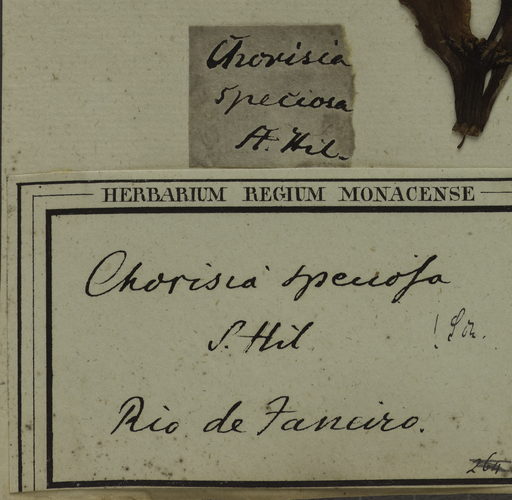 Chorisia
speciosa
St. Hil.
HERBARIUM REGIUM MONACENSE
Chorisia speciosa
S. Hil
Rio de Janeiro.
264